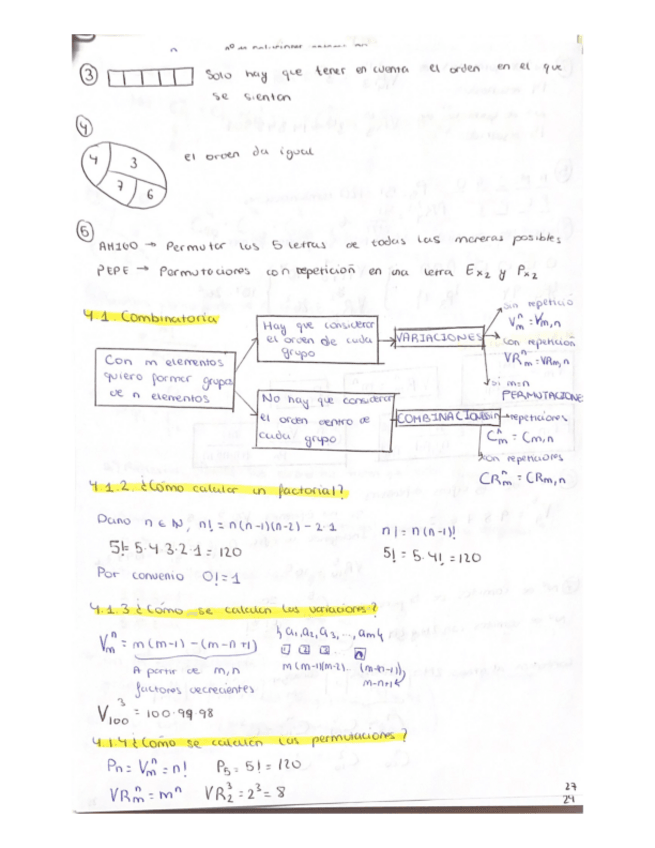 n nº de
③ Solo hay que tener en cuenta el orden en el que
se sientan
④
4 3 7 6 el orden da igual
⑤
AMIGO → Permutar las 5 letras de todas las maneras posibles
PEPE → Permutaciones con repetición en una letra Ex2 y Px2
4.1. Combinatoria
Con m elementos
quiero formar grupos
de n elementos
Hay que considerar
el orden de cada
grupo
VARIACIONES
sin repetició
Vₘⁿ = Vm,n
con repetición
VRₘⁿ = VRm,n
si m=n
PERMUTACIONE
No hay que considerar
el orden dentro de
cada grupo
COMBINACIONES
sin repeticiones
Cₘⁿ = Cm,n
con repeticiones
CRₘⁿ = CRm,n
4.1.2. ¿Cómo calcular un factorial?
Dano n ∈ N, n! = n(n-1)(n-2) - 2·1
n! = n(n-1)!
5! = 5·4·3·2·1 = 120
5! = 5·4! = 120
Por convenio 0! = 1
4.1.3 ¿Cómo se calculan las variaciones?
Vₘⁿ = m(m-1) - (m-n+1)
{a₁,a₂,a₃,...,am}
1 2 3 ... n
m(m-1)(m-2)... (m-(n-1))
m-n+1
A partir de m,n
factores decrecientes
V₁₀₀³ = 100·99·98
4.1.4 ¿Cómo se calculan las permutaciones?
Pn = Vₘⁿ = n! P₅ = 5! = 120
VRₘⁿ = mⁿ VR₂³ = 2³ = 8
27
24